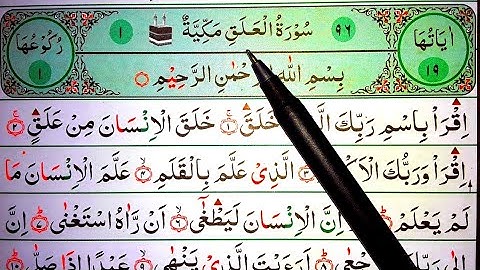 اٰيَاتُهَا ١٩ ٩٦ سُوْرَةُ الْعَلَقِ مَكِّيَّةٌ ١ رُكُوْعُهَا ١
بِسْمِ اللّٰهِ الرَّحْمٰنِ الرَّحِيْمِ
اِقْرَاْ بِاسْمِ رَبِّكَ خَلَقَ ۚ ١ خَلَقَ الْاِنْسَانَ مِنْ عَلَقٍ ۚ ٢
اِقْرَاْ وَرَبُّكَ ۙ ٣ الَّذِيْ عَلَّمَ بِالْقَلَمِ ۙ ٤ عَلَّمَ الْاِنْسَانَ مَا
لَمْ يَعْلَمْ اِنَّ الْاِنْسَانَ لَيَطْغٰٓى ۙ ٦ اَنْ رَّاٰهُ اسْتَغْنٰى ؕ ٧ اِنَّ
اِلٰى رَبِّكَ ٨ اَرَءَيْتَ الَّذِيْ يَنْهٰى ۙ ٩ عَبْدًا اِذَا صَلّٰى ؕ ١٠